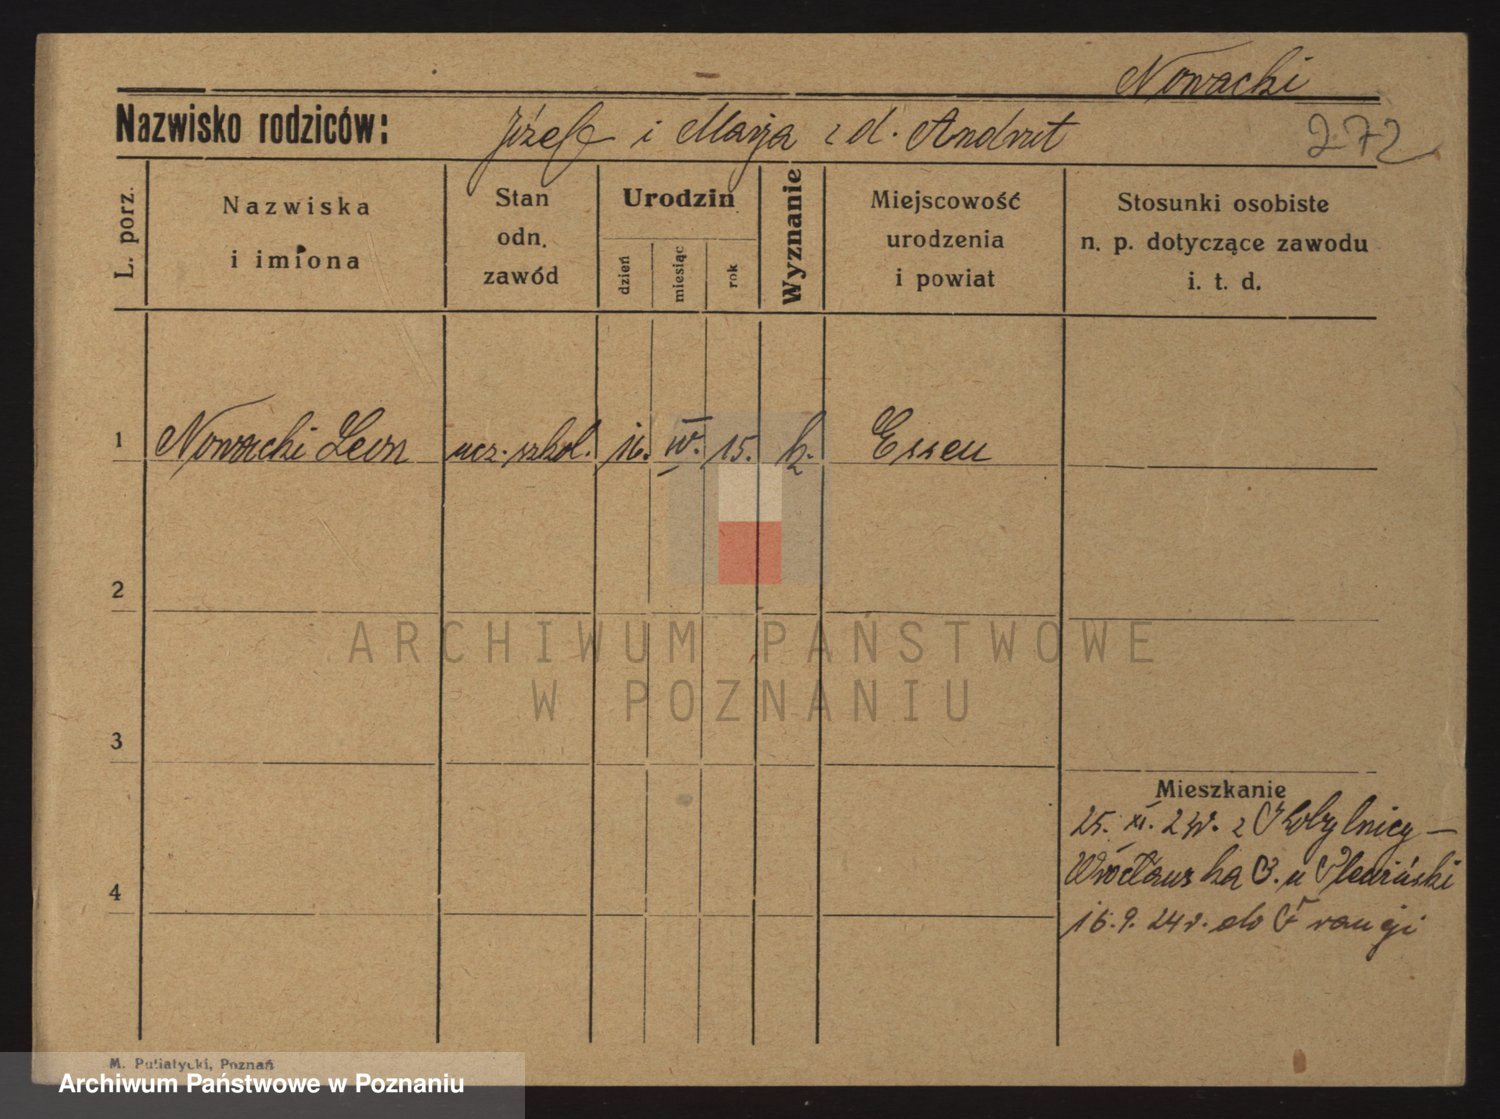 Nowacki
Nazwisko rodziców: Józef i Marja z d. Andrut
272
L. porz.
Nazwiska
i imiona
Stan
odn.
zawód
Urodzin
dzień
miesiąc
rok
Wyznanie
Miejscowość
urodzenia
i powiat
Stosunki osobiste
n. p. dotyczące zawodu
i. t. d.
1 Nowacki Leon ucz. szkol. 16. IV. 15. k. Essen
2
ARCHIWUM PAŃSTWOWE
W POZNANIU
3
Mieszkanie
25. XI. z Kobylnicy –
Wrocławska u
4
16.9.24r. do Francji
M. Putiatycki, Poznań
Archiwum Państwowe w Poznaniu